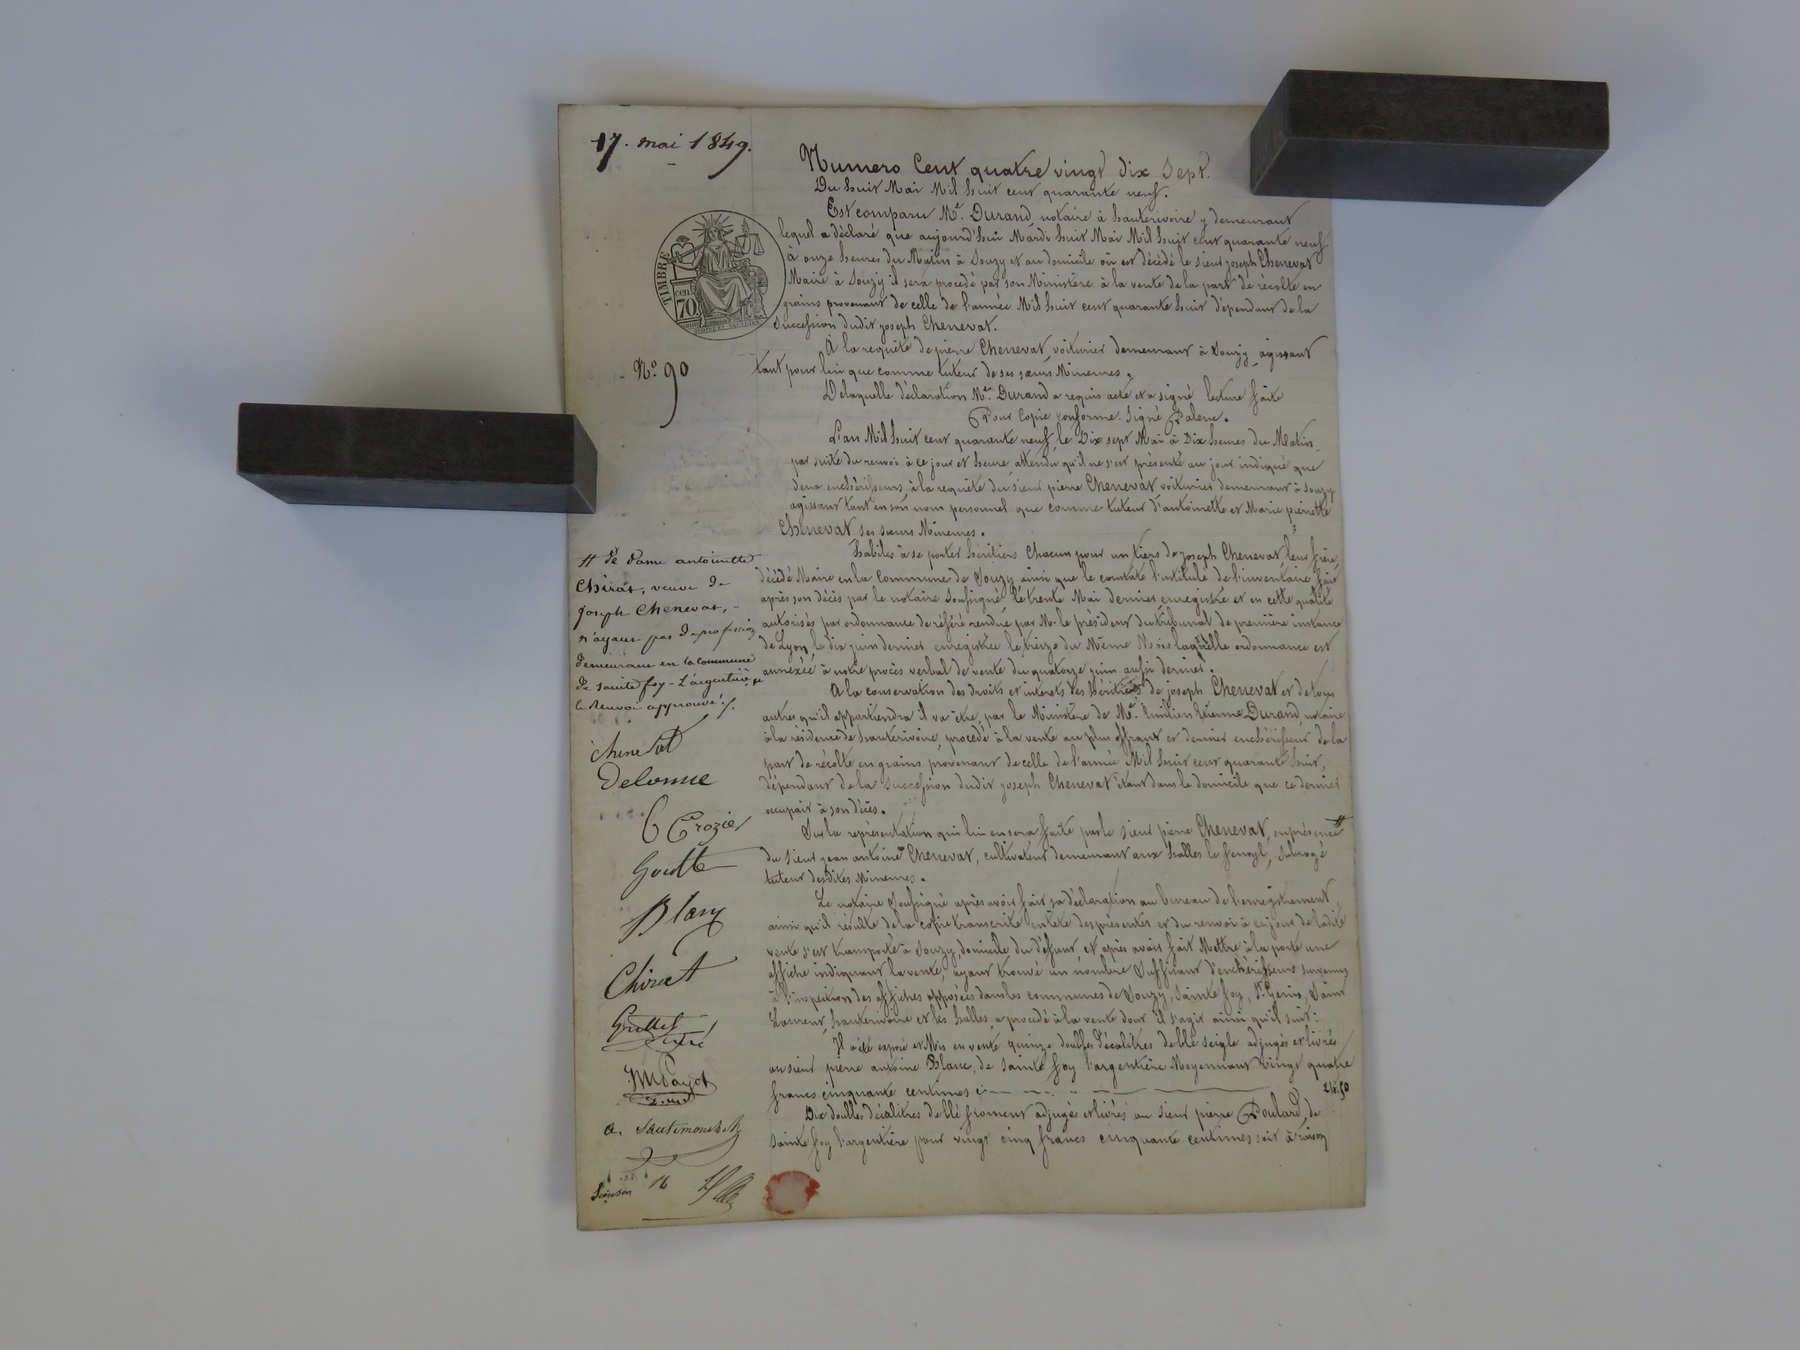 17. mai 1849.
Numero Cent quatre vingt dix Sept.
Du huit Mai Mil huit cent quarante neuf.
Est comparu Me. Durand, notaire à hauterivoire y demeurant
lequel a déclaré que aujourd'hui Mardi huit Mai Mil huit cent quarante neuf
à onze heures du Matin à Souzy et au domicile où est décédé le sieur joseph Chenevat
Maire à Souzy il sera procédé par son Ministère à la vente de la part de recolte en
grains provenant de celle de l'année Mil huit cent quarante huit dépendant de la
succession dudit joseph Chenevat.
TIMBRE
cen.
70
No. 90
A la requête de pierre Chenevat, voiturier demeurant à Souzy, agissant
tant pour lui que comme tuteur de ses sœurs Mineures,
De laquelle déclaration Me. Durand a requis acte et a signé lecture faite
Pour Copie conforme. Signé Palene.
L'an Mil huit cent quarante neuf, le Dix sept Mai à Dix heures du Matin,
par suite du renvoi à ce jour et heure, attendu qu'il ne s'est présenté au jour indiqué que
deux enchérisseurs, à la requête du sieur pierre Chenevat voiturier demeurant à Souzy
agissant tant en son nom personnel que comme tuteur d'antoinette et Marie pierrette
Chenevat, ses sœurs Mineures.
habiles à se porter héritiers Chacun pour un tiers de joseph Chenevat, leur frère,
décédé Maire en la Commune de Souzy, ainsi que le constate l'intitulé de l'inventaire fait
après son décès par le notaire soussigné, le trente Mai dernier, enregistré et en cette qualité
autorisés par ordonnance de référé rendue par Mr. le président du tribunal de première instance
de Lyon, le dix juin dernier, enregistrée le treize du Même Mois laquelle ordonnance est
annexée à notre procès verbal de vente du quatorze juin aussi dernier.
A la conservation des droits et interets des héritiers de joseph Chenevat et de tous
autres qu'il appartiendra il va être, par le Ministère de Me. Emilien Etienne Durand, notaire
à la résidence de hauterivoire, procédé à la vente au plus offrant et dernier enchérisseur de la
part de récolte en grains provenant de celle de l'année Mil huit cent quarante huit,
dépendant de la succession dudit joseph Chenevat étant dans le domicile que ce dernier
occupait à son décès.
Sur la représentation qui lui en sera faite par le sieur pierre Chenevat, en présence #
du sieur jean antoine Chenevat, cultivateur demeurant aux halles le fenoyl, subrogé
tuteur desdites Mineures.
Le notaire soussigné après avoir fait sa déclaration au bureau de l'enregistrement,
ainsi qu'il résulte de la copie transcrite en tête des présentes et du renvoi à ce jour de ladite
vente s'est transporté à Souzy, domicile du défunt, et après avoir fait Mettre à la porte une
affiche indiquant la vente, ayant trouvé un nombre suffisant d'enchérisseurs survenus
à l'inspection des affiches apposées dans les communes de Souzy, Sainte foy, St. Genis, Saint
Laurent, hauterivoire et les halles, a procédé à la vente dont il s'agit ainsi qu'il suit:
Il a été exposé et Mis en vente quinze doubles décalitres de blé seigle adjugés et livrés
au sieur pierre antoine Blanc, de sainte foy l'argentière Moyennant vingt quatre
francs cinquante centimes ci 24f.50
Dix doubles décalitres de blé froment adjugés et livrés au sieur pierre Poulard, de
sainte foy l'argentière pour vingt cinq francs cinquante centimes soit à raison
# de Dame antoinette
Chirat, veuve de
joseph Chenevat,
n'ayant pas de profession
demeurant en la commune
de sainte foy-l'argentière
le Renvoi approuvé ./.
chenevat
Delorme
C Crozier
Goutte
Blanc
Chirat